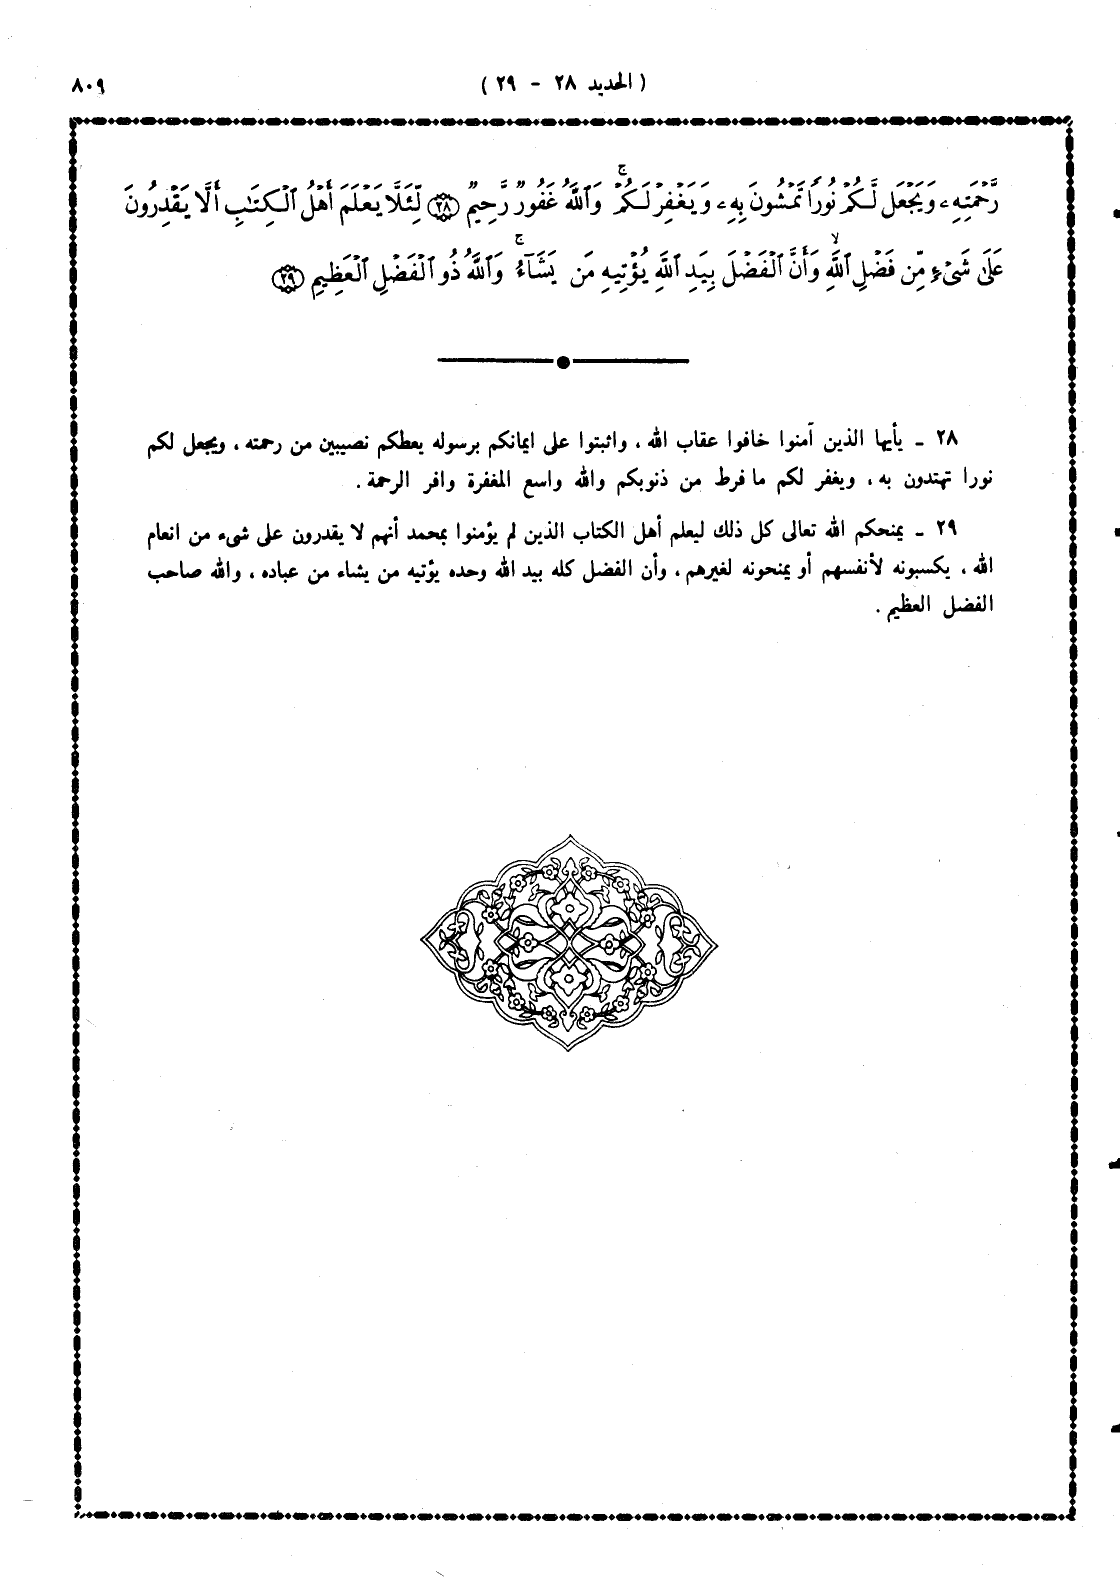 ( الحديد ٢٨ - ٢٩ )
٨٠٩
رَّحْمَتِهِۦ وَيَجْعَل لَّكُمْ نُورًا تَمْشُونَ بِهِۦ وَيَغْفِرْ لَكُمْ ۚ وَٱللَّهُ غَفُورٌ رَّحِيمٌ ﴿٢٨﴾ لِّئَلَّا يَعْلَمَ أَهْلُ ٱلْكِتَٰبِ أَلَّا يَقْدِرُونَ
عَلَىٰ شَىْءٍ مِّن فَضْلِ ٱللَّهِ ۙ وَأَنَّ ٱلْفَضْلَ بِيَدِ ٱللَّهِ يُؤْتِيهِ مَن يَشَآءُ ۚ وَٱللَّهُ ذُو ٱلْفَضْلِ ٱلْعَظِيمِ ﴿٢٩﴾
٢٨ ـ يأيها الذين آمنوا خافوا عقاب الله ، واثبتوا على ايمانكم برسوله يعطكم نصيبين من رحمته ، ويجعل لكم
نورا تهتدون به ، ويغفر لكم ما فرط من ذنوبكم والله واسع المغفرة وافر الرحمة .
٢٩ ـ يمنحكم الله تعالى كل ذلك ليعلم أهل الكتاب الذين لم يؤمنوا بمحمد أنهم لا يقدرون على شىء من انعام
الله ، يكسبونه لأنفسهم أو يمنحونه لغيرهم ، وأن الفضل كله بيد الله وحده يؤتيه من يشاء من عباده ، والله صاحب
الفضل العظيم .